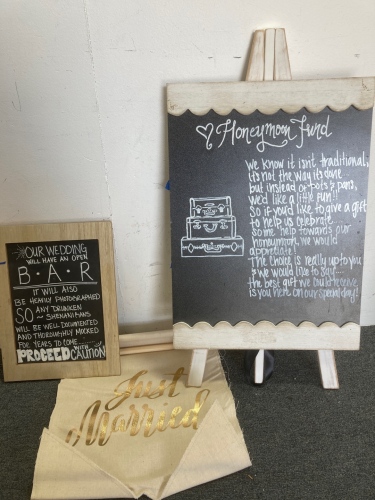 Honeymoon Fund
We know it isn't traditional,
it's not the way it's done
but instead of pots & pans,
we'd like a little fun!!
So if you'd like to give a gift
to help us celebrate
some help towards our
honeymoon, we would
appreciate!
The choice is really up to you
& we would like to say....
the best gift we could receive
is you here on our special day!
OUR WEDDING
WILL HAVE AN OPEN
B•A•R
IT WILL ALSO
BE HEAVILY PHOTOGRAPHED
SO ANY DRUNKEN
SHENANIGANS
WILL BE WELL DOCUMENTED
AND THOROUGHLY MOCKED
FOR YEARS TO COME....
PROCEED WITH CAUTION
Just
Married